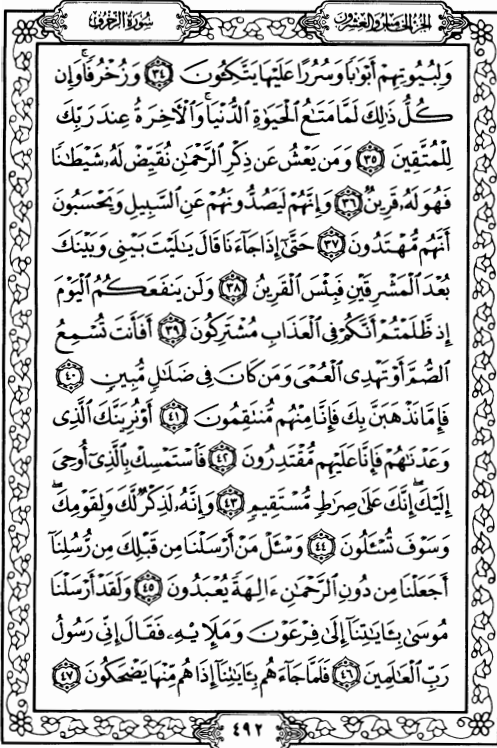 سُورَةُ الزُّخْرُفِ
الجزء الخامس والعشرون
وَلِبُيُوتِهِمْ أَبْوَٰبًا وَسُرُرًا عَلَيْهَا يَتَّكِـُٔونَ ٣٤ وَزُخْرُفًا ۚ وَإِن
كُلُّ ذَٰلِكَ لَمَّا مَتَـٰعُ ٱلْحَيَوٰةِ ٱلدُّنْيَا ۚ وَٱلْـَٔاخِرَةُ عِندَ رَبِّكَ
لِلْمُتَّقِينَ ٣٥ وَمَن يَعْشُ عَن ذِكْرِ ٱلرَّحْمَـٰنِ نُقَيِّضْ لَهُۥ شَيْطَـٰنًا
فَهُوَ لَهُۥ قَرِينٌ ٣٦ وَإِنَّهُمْ لَيَصُدُّونَهُمْ عَنِ ٱلسَّبِيلِ وَيَحْسَبُونَ
أَنَّهُم مُّهْتَدُونَ ٣٧ حَتَّىٰٓ إِذَا جَآءَنَا قَالَ يَـٰلَيْتَ بَيْنِى وَبَيْنَكَ
بُعْدَ ٱلْمَشْرِقَيْنِ فَبِئْسَ ٱلْقَرِينُ ٣٨ وَلَن يَنفَعَكُمُ ٱلْيَوْمَ
إِذ ظَّلَمْتُمْ أَنَّكُمْ فِى ٱلْعَذَابِ مُشْتَرِكُونَ ٣٩ أَفَأَنتَ تُسْمِعُ
ٱلصُّمَّ أَوْ تَهْدِى ٱلْعُمْىَ وَمَن كَانَ فِى ضَلَـٰلٍ مُّبِينٍ ٤٠
فَإِمَّا نَذْهَبَنَّ بِكَ فَإِنَّا مِنْهُم مُّنتَقِمُونَ ٤١ أَوْ نُرِيَنَّكَ ٱلَّذِى
وَعَدْنَـٰهُمْ فَإِنَّا عَلَيْهِم مُّقْتَدِرُونَ ٤٢ فَٱسْتَمْسِكْ بِٱلَّذِىٓ أُوحِىَ
إِلَيْكَ ۖ إِنَّكَ عَلَىٰ صِرَٰطٍ مُّسْتَقِيمٍ ٤٣ وَإِنَّهُۥ لَذِكْرٌ لَّكَ وَلِقَوْمِكَ ۖ
وَسَوْفَ تُسْـَٔلُونَ ٤٤ وَسْـَٔلْ مَنْ أَرْسَلْنَا مِن قَبْلِكَ مِن رُّسُلِنَآ
أَجَعَلْنَا مِن دُونِ ٱلرَّحْمَـٰنِ ءَالِهَةً يُعْبَدُونَ ٤٥ وَلَقَدْ أَرْسَلْنَا
مُوسَىٰ بِـَٔايَـٰتِنَآ إِلَىٰ فِرْعَوْنَ وَمَلَإِي۟هِۦ فَقَالَ إِنِّى رَسُولُ
رَبِّ ٱلْعَـٰلَمِينَ ٤٦ فَلَمَّا جَآءَهُم بِـَٔايَـٰتِنَآ إِذَا هُم مِّنْهَا يَضْحَكُونَ ٤٧
٤٩٢